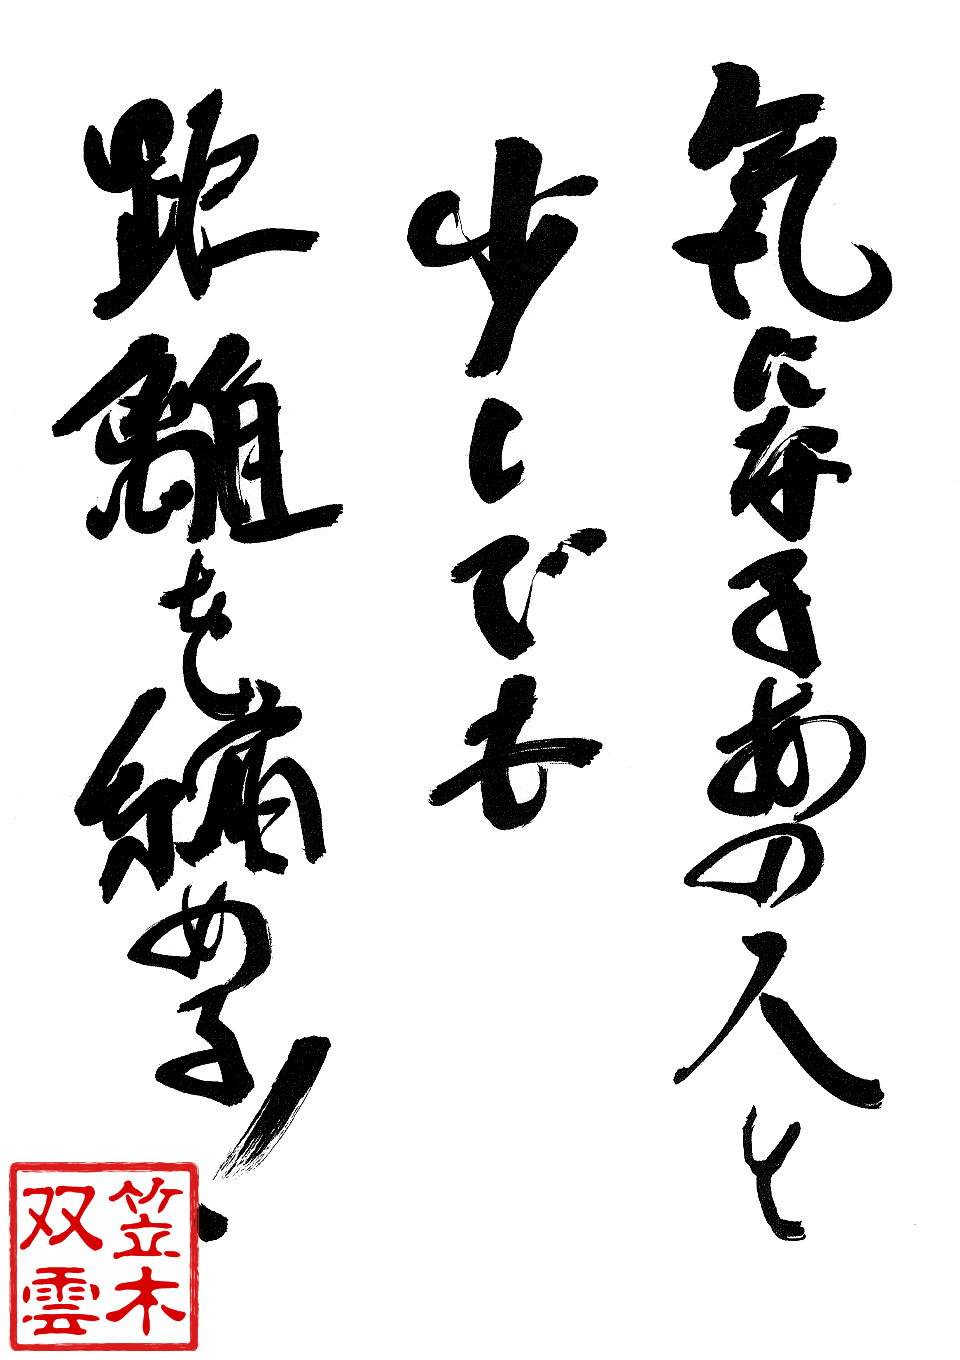 気になるあの人と
少しでも
距離を縮める!
笠木
双雲